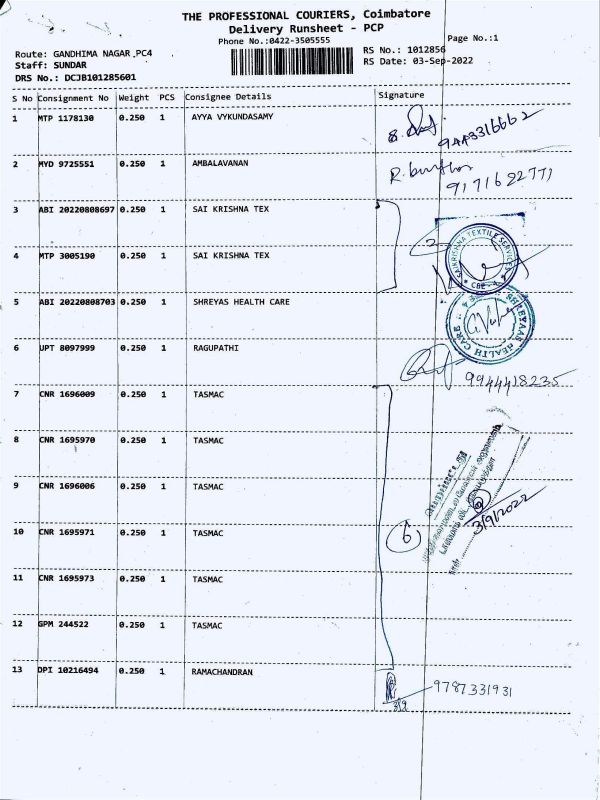 THE PROFESSIONAL COURIERS, Coimbatore
Delivery Runsheet - PCP
Phone No.:0422-3505555
Page No.:1
Route: GANDHIMA NAGAR ,PC4
RS No.: 1012856
Staff: SUNDAR
RS Date: 03-Sep-2022
DRS No.: DCJB101285601
S No Consignment No Weight PCS Consignee Details Signature
1 MTP 1178130 0.250 1 AYYA VYKUNDASAMY
9443316662
2 MYD 9725551 0.250 1 AMBALAVANAN
9171622771
3 ABI 20220808697 0.250 1 SAI KRISHNA TEX
2
SAIKRISHNA TEXTILE SERVICES
CBE
4 MTP 3005190 0.250 1 SAI KRISHNA TEX
5 ABI 20220808703 0.250 1 SHREYAS HEALTH CARE
SHREYAAS HEALTH CARE
6 UPT 8097999 0.250 1 RAGUPATHI
9944418235
7 CNR 1696009 0.250 1 TASMAC
8 CNR 1695970 0.250 1 TASMAC
9 CNR 1696006 0.250 1 TASMAC
3/9/2022
10 CNR 1695971 0.250 1 TASMAC
6
11 CNR 1695973 0.250 1 TASMAC
12 GPM 244522 0.250 1 TASMAC
13 DPI 10216494 0.250 1 RAMACHANDRAN
9787331931
3/9